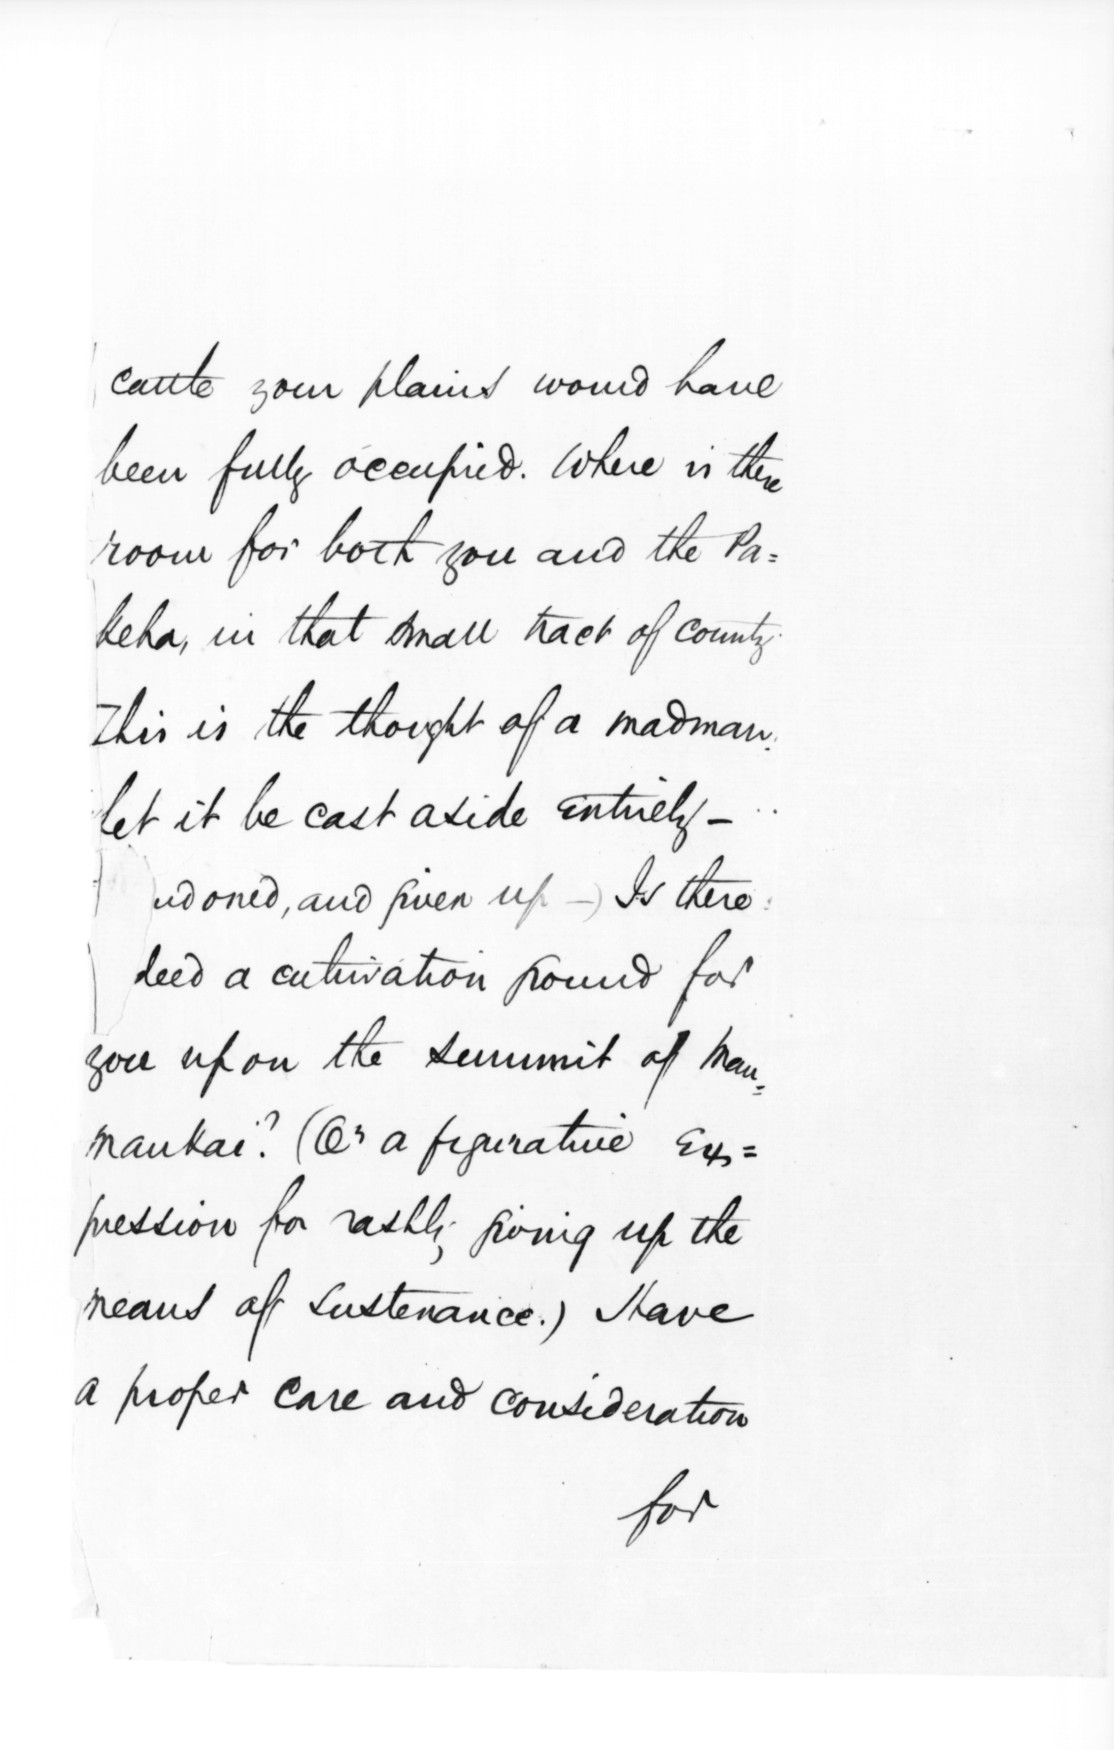 cattle your plains would have
been fully occupied. Where is there
room for both you and the Pa=
keha, in that small tract of county.
This is the thought of a madman.
let it be cast aside entirely—
ndoned, and given up —) Is there
deed a cultivation ground for
you upon the summit of Mau=
maukai? (Or a figurative Ex=
pression for rashly giving up the
means of sustenance.) Have
a proper care and consideration
for